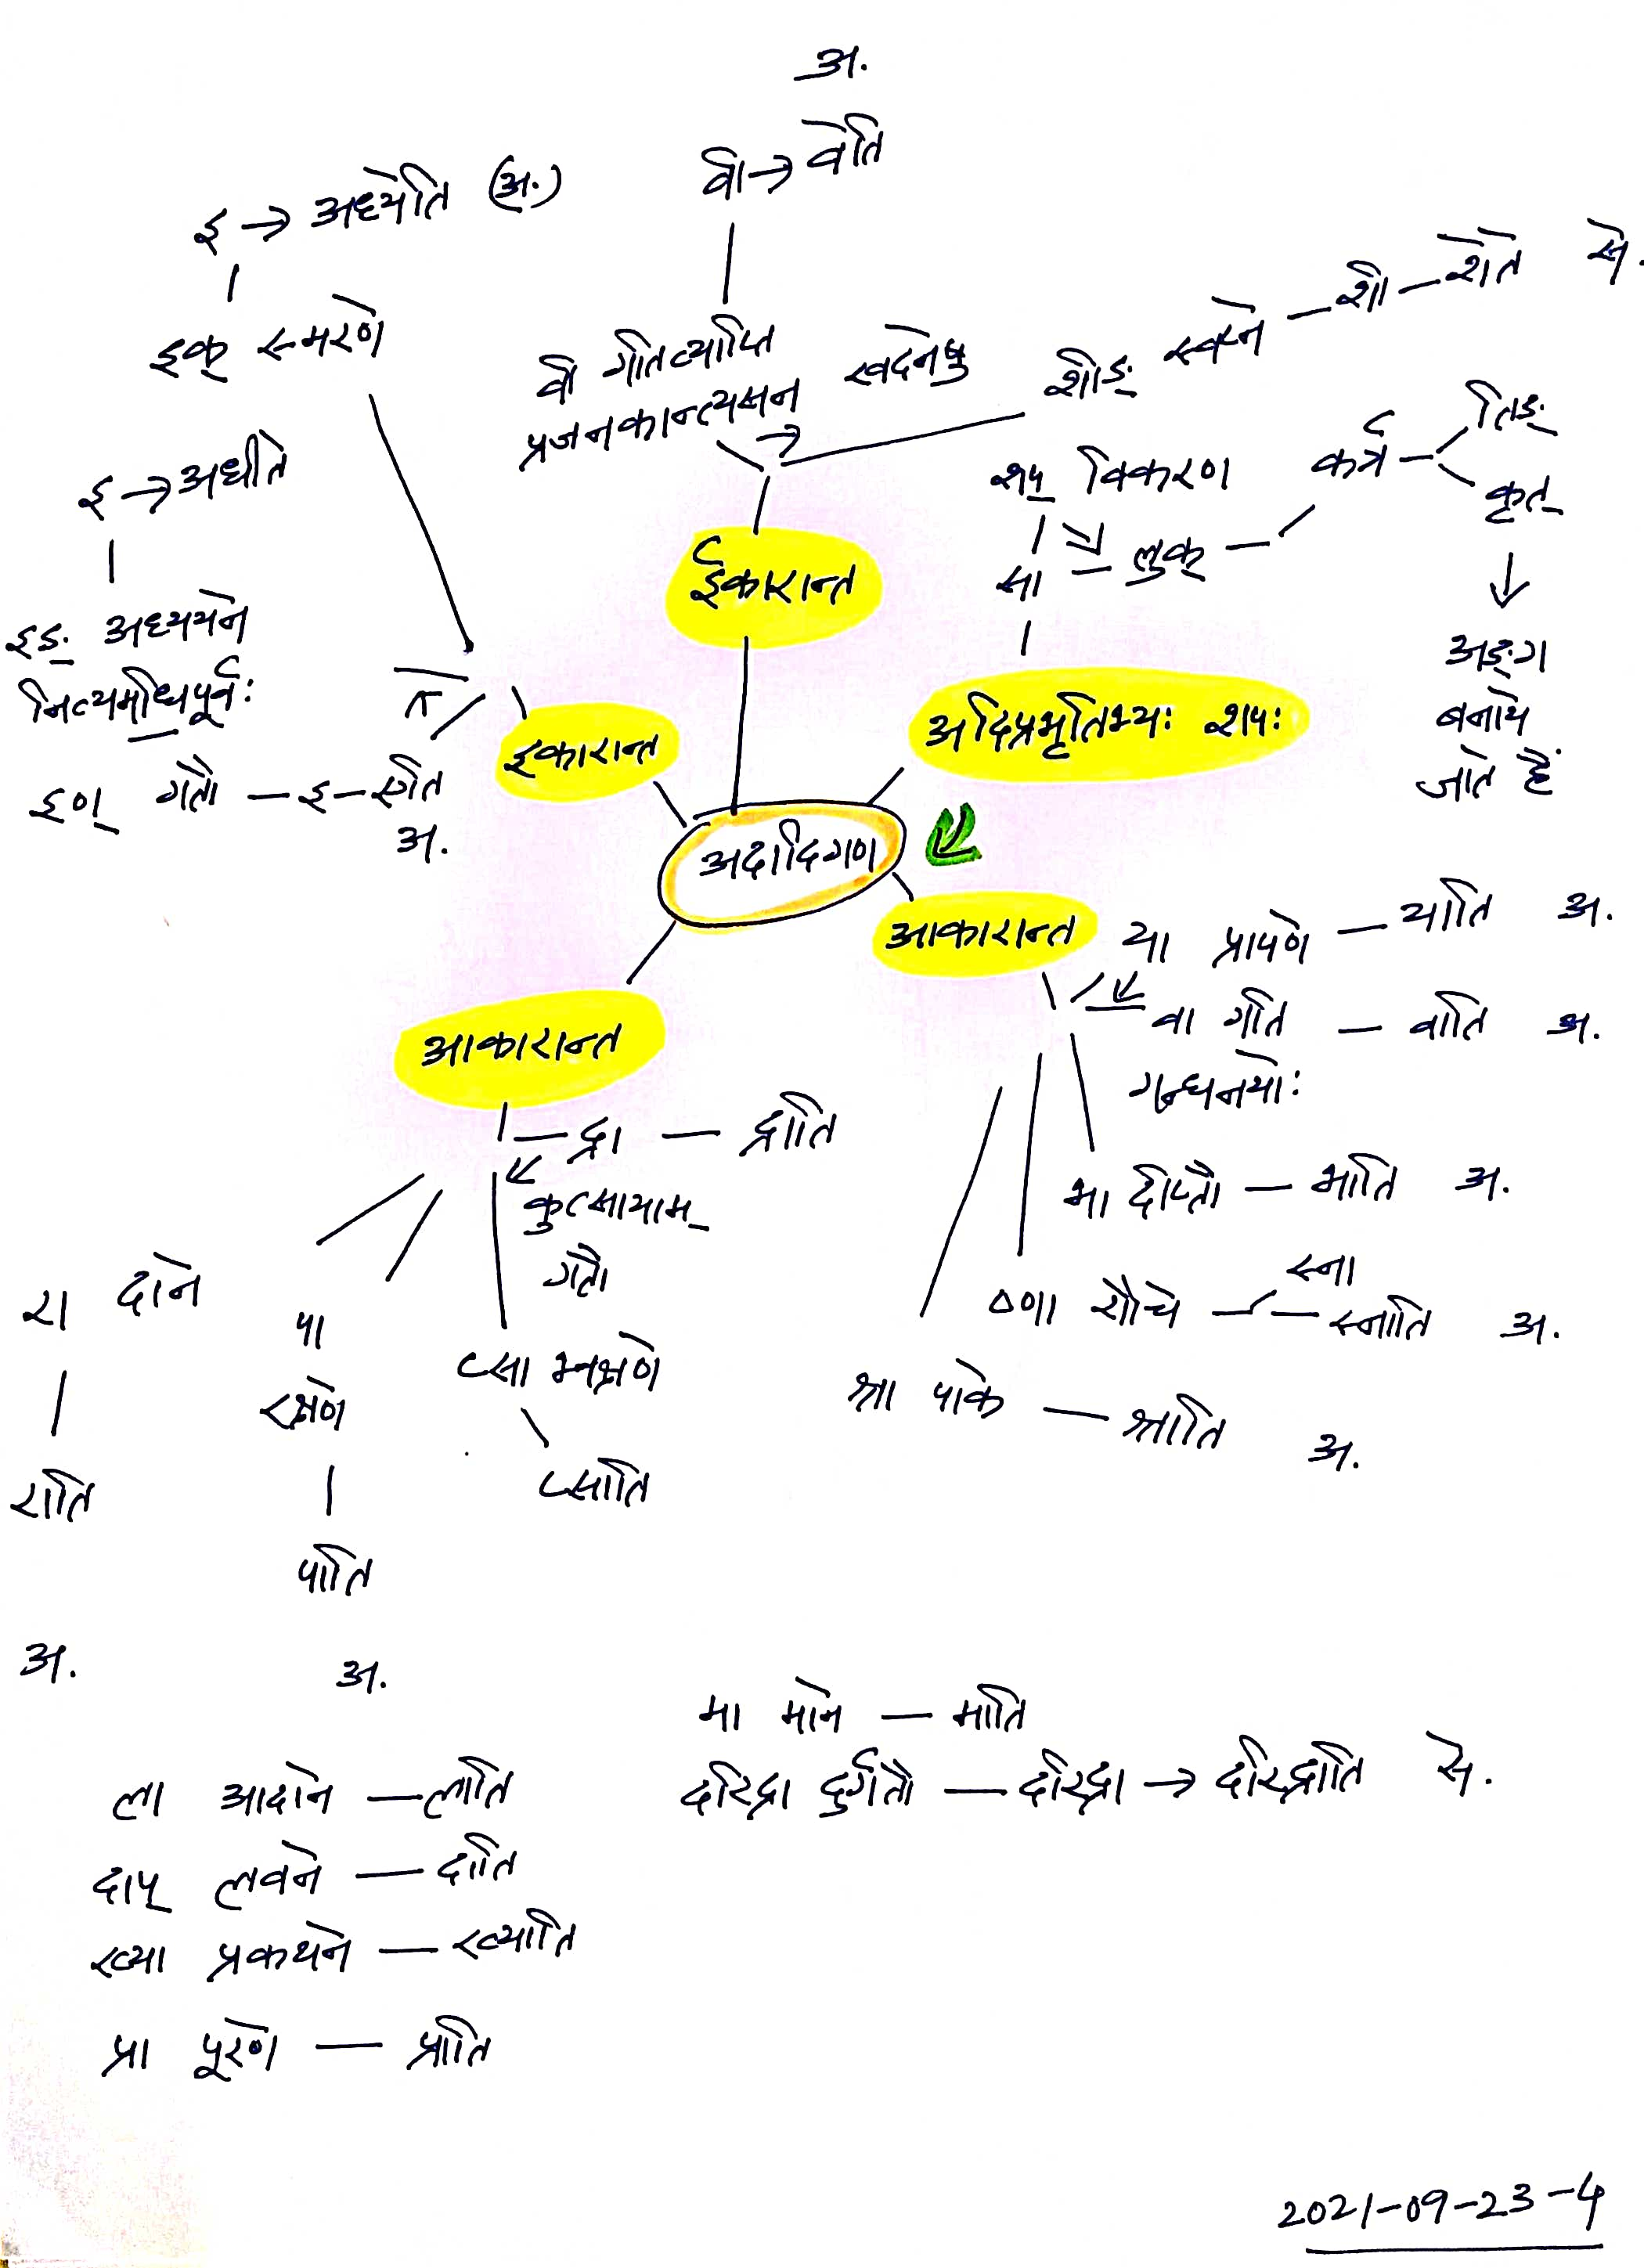 अ.
वी → वेति
इ → अध्येति (अ.)
इक् स्मरणे
वी गतिव्याप्ति
प्रजनकान्त्यसन खदनेषु
शीङ् स्वप्ने — शी — शेते से.
इ → अधीते
इङ् अध्ययने
नित्यमधिपूर्वः
इण् गतौ — इ — एति
अ.
ईकारान्त
इकारान्त
शप् विकरण
सा — लुक् — कर्तृ — तिङ्
कृत्
अङ्ग
बनाये
जाते हैं
अदिप्रभृतिभ्यः शपः
अदादिगण
आकारान्त
या प्रापणे — याति अ.
वा गति — वाति अ.
गन्धनयोः
भा दीप्तौ — भाति अ.
ष्णा शौचे — स्ना
— स्नाति अ.
श्रा पाके — श्राति अ.
आकारान्त
— द्रा — द्राति
कुत्सायाम्
गतौ
रा दाने
राति
अ.
पा
रक्षणे
पाति
अ.
प्सा भक्षणे
प्साति
मा माने — माति
दरिद्रा दुर्गतौ — दरिद्रा → दरिद्राति से.
ला आदाने — लाति
दाप् लवने — दाति
ख्या प्रकथने — ख्याति
प्रा पूरणे — प्राति
2021-09-23-4